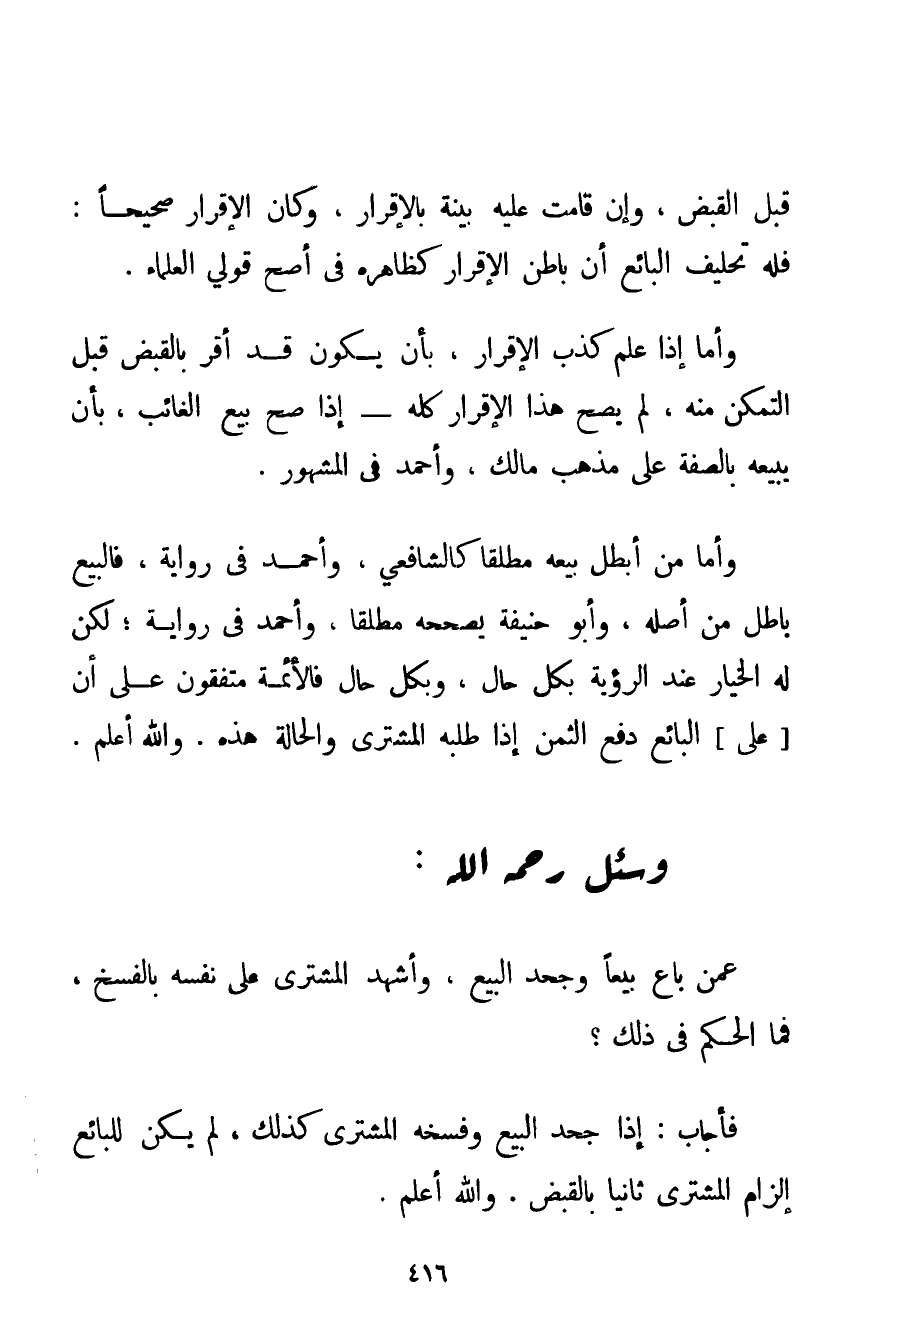 قبل القبض ، وإن قامت عليه بينة بالإقرار ، وكان الإقرار صحيحـــاً :
فله تحليف البائع أن باطن الإقرار كظاهره فى أصح قولي العلماء .
وأما إذا علم كذب الإقرار ، بأن يـكون قــد أقر بالقبض قبل
التمكن منه ، لم يصح هذا الإقرار كله — إذا صح بيع الغائب ، بأن
يبيعه بالصفة على مذهب مالك ، وأحمد فى المشهور .
وأما من أبطل بيعه مطلقا كالشافعي ، وأحمــد فى رواية ، فالبيع
باطل من أصله ، وأبو حنيفة يصححه مطلقا ، وأحمد فى روايـة ؛ لكن
له الخيار عند الرؤية بكل حال ، وبكل حال فالأئمـة متفقون عــلى أن
[ على ] البائع دفع الثمن إذا طلبه المشترى والحالة هذه . والله أعلم .
وسئل رحمه الله :
عمن باع بيعاً وجحد البيع ، وأشهد المشترى على نفسه بالفسخ ،
فما الحـكم فى ذلك ؟
فأجاب : إذا جحد البيع وفسخه المشترى كذلك ، لم يـكن للبائع
إلزام المشترى ثانيا بالقبض . والله أعلم .
٤١٦